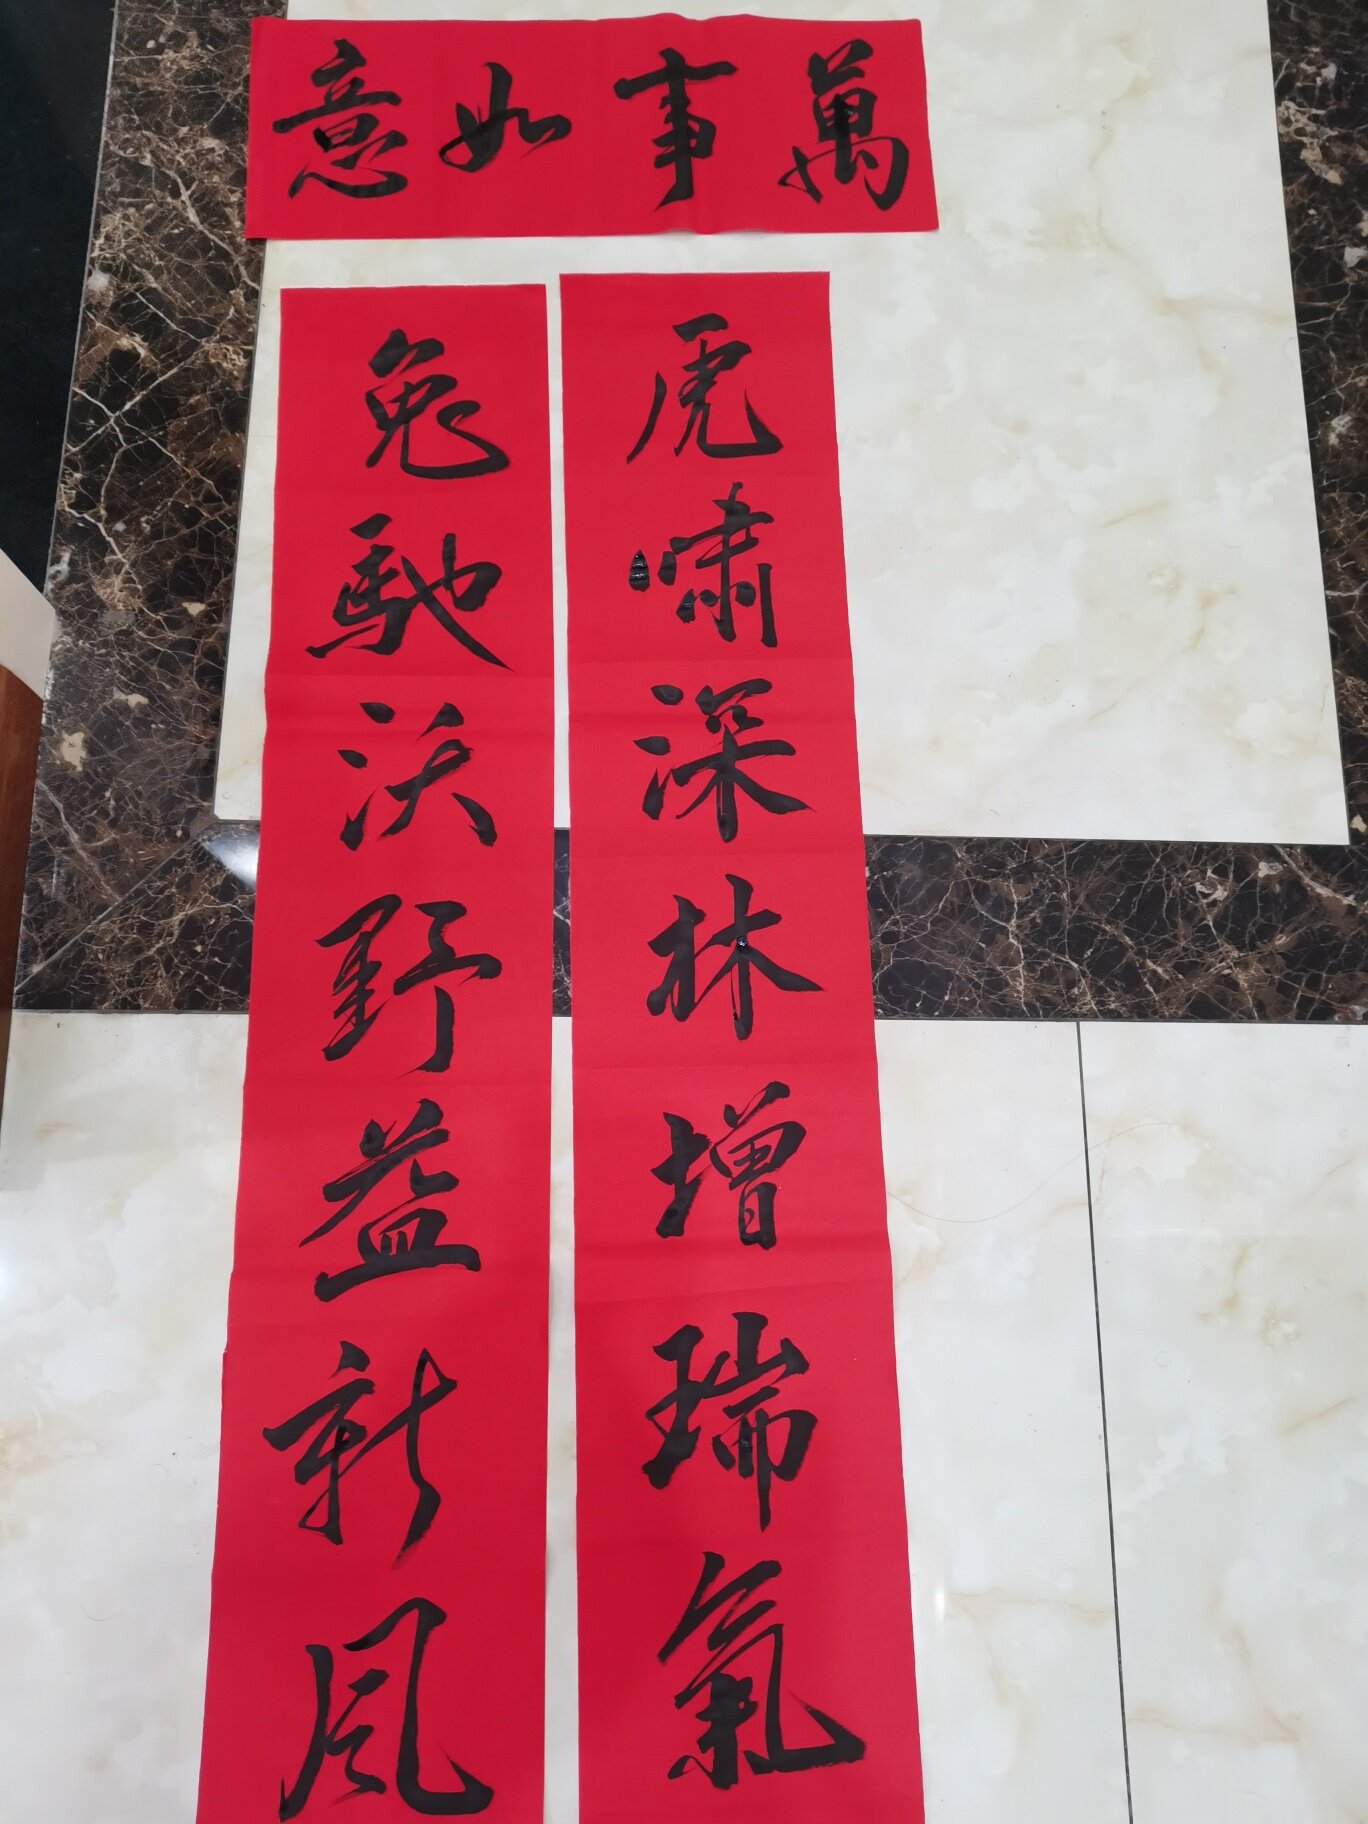 萬事如意
虎啸深林增瑞氣
兔馳沃野益新风